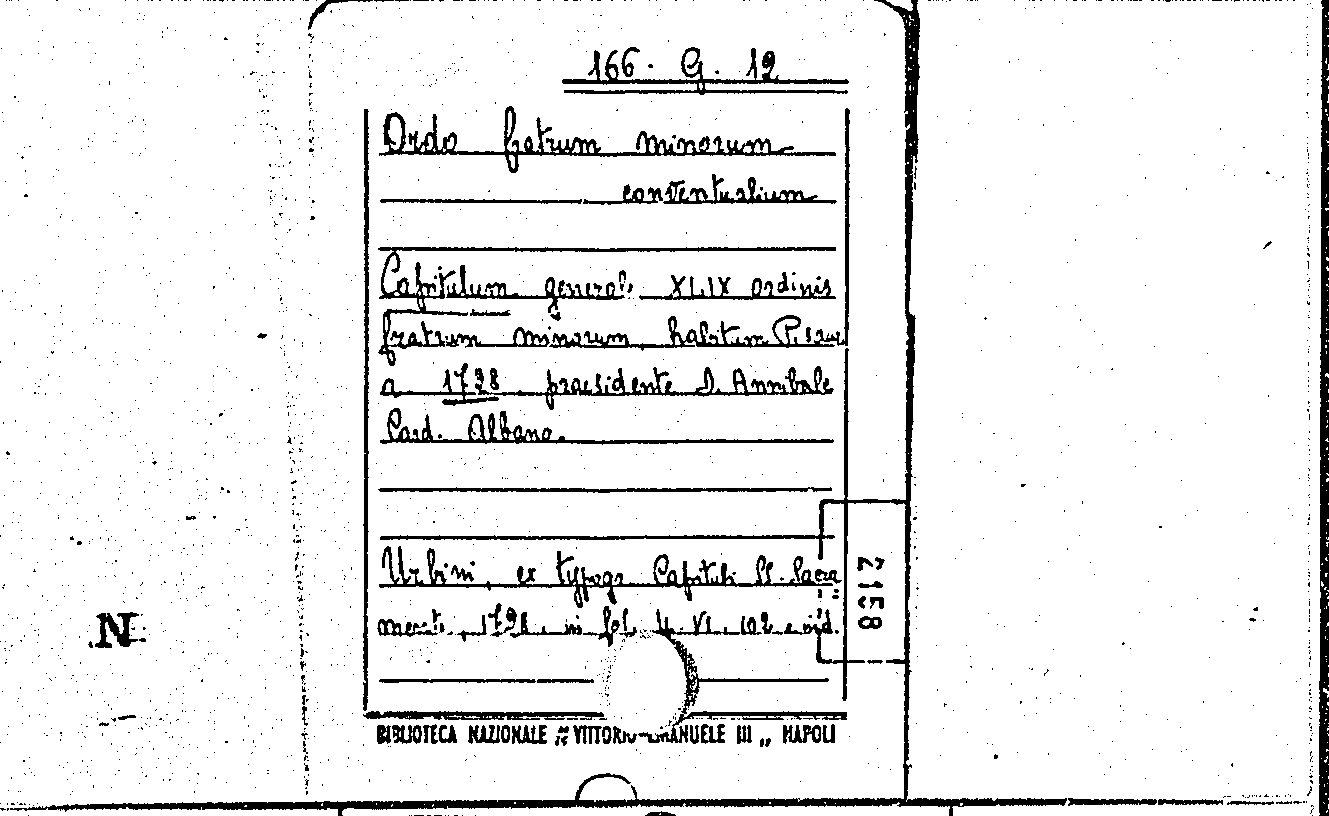 166. G. 12
Ordo fratrum minorum
conventualium
Capitulum generale XLIX ordinis
fratrum minorum habitum Pisaur
a 1728 praesidente D. Annibale
Card. Albano.
Urbini, ex typogr. Capituli SS. Sacra
menti, 1728, in fol. VI, 102 e ind.
BIBLIOTECA NAZIONALE „ VITTORIO EMANUELE III „ NAPOLI
2158
N